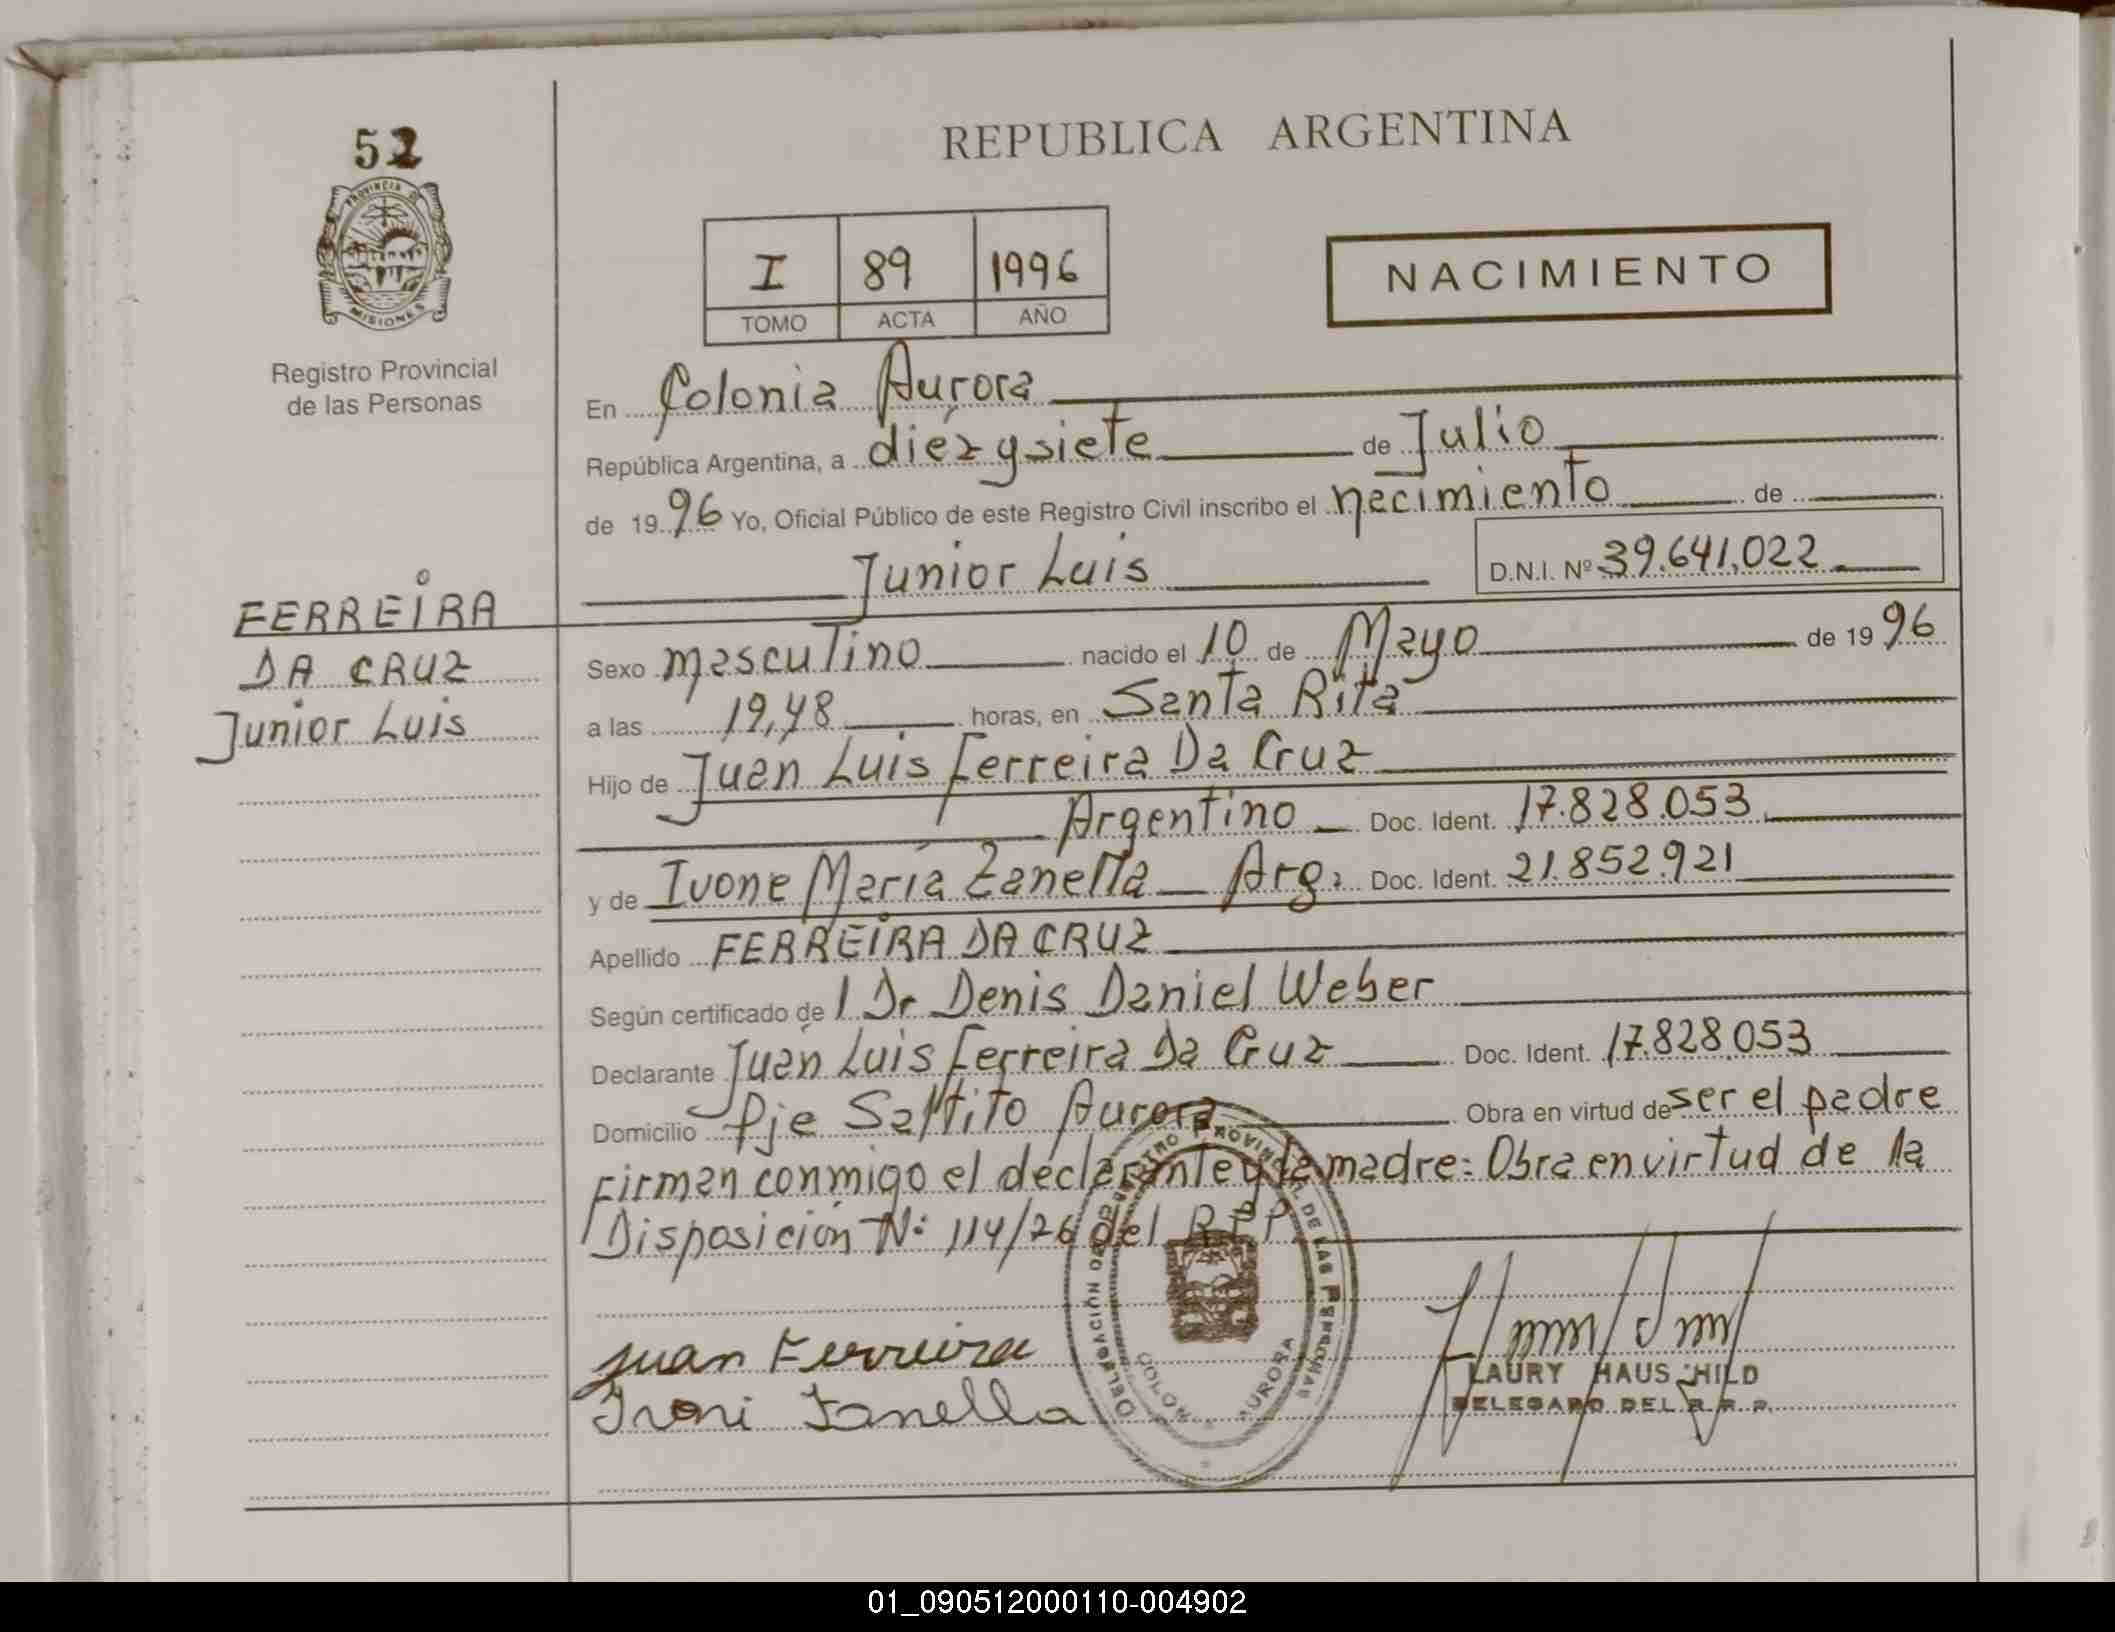 52
PROVINCIA DE
MISIONES
Registro Provincial
de las Personas
FERREIRA
DA CRUZ
Junior Luis
REPUBLICA ARGENTINA
I 89 1996
TOMO ACTA AÑO
NACIMIENTO
En Colonia Aurora
República Argentina, a diez y siete de Julio
de 1996 Yo, Oficial Público de este Registro Civil inscribo el nacimiento de
Junior Luis D.N.I. Nº 39.641.022
Sexo masculino nacido el 10 de Mayo de 1996
a las 19,48 horas, en Santa Rita
Hijo de Juan Luis Ferreira Da Cruz
Argentino Doc. Ident. 17.828.053
y de Ivone María Zanella Arg. Doc. Ident. 21.852.921
Apellido FERREIRA DA CRUZ
Según certificado de 1 Dr Denis Daniel Weber
Declarante Juan Luis Ferreira Da Cruz Doc. Ident. 17.828.053
Domicilio Pje Saltito Aurora Obra en virtud de ser el padre
Firman conmigo el declarante y la madre: Obra en virtud de la
Disposición Nº 114/26 del R.P.P.
Juan Ferreira
Ivoni Zanella
DELEGACIÓN REGISTRO PROVINCIAL DE LAS PERSONAS
AURORA
LAURY HAUS HILD
DELEGADO DEL R.P.P.
01_090512000110-004902